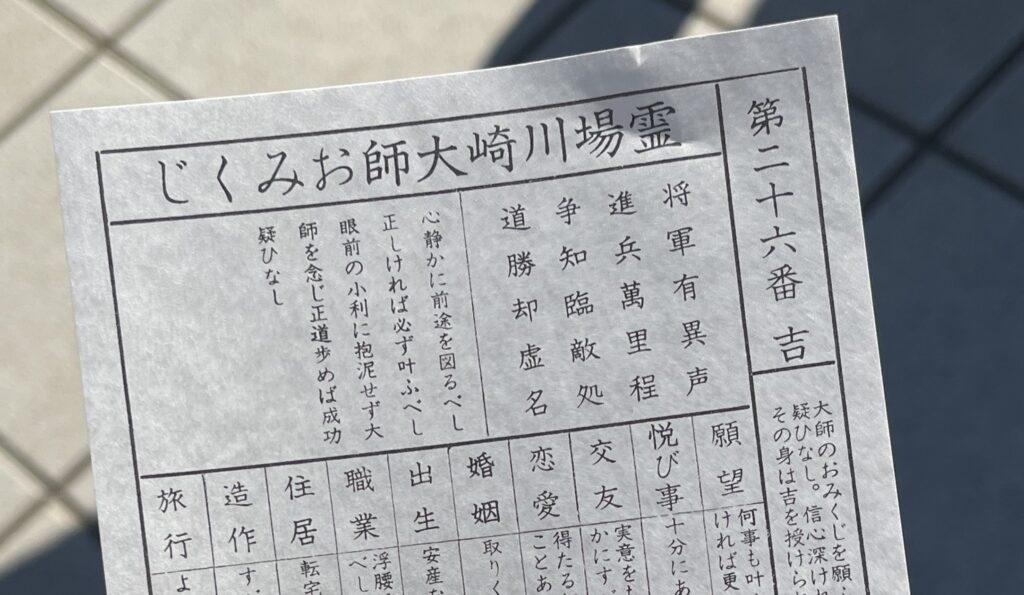 第二十六番 吉
大師のおみくじを願
疑ひなし。信心深け
その身は吉を授けら
霊場川崎大師おみくじ
将軍有異声
進兵萬里程
争知臨敵処
道勝却虚名
心静かに前途を図るべし
正しければ必ず叶ふべし
眼前の小利に抱泥せず大
師を念じ正道歩めば成功
疑ひなし
願望
何事も叶
ければ更
悦び事
十分にあ
交友
実意を
かにす
恋愛
得たる
ことあ
婚姻
取りく
出生
安産な
職業
浮腰
べし
住居
転宅
造作
す
旅行
よ